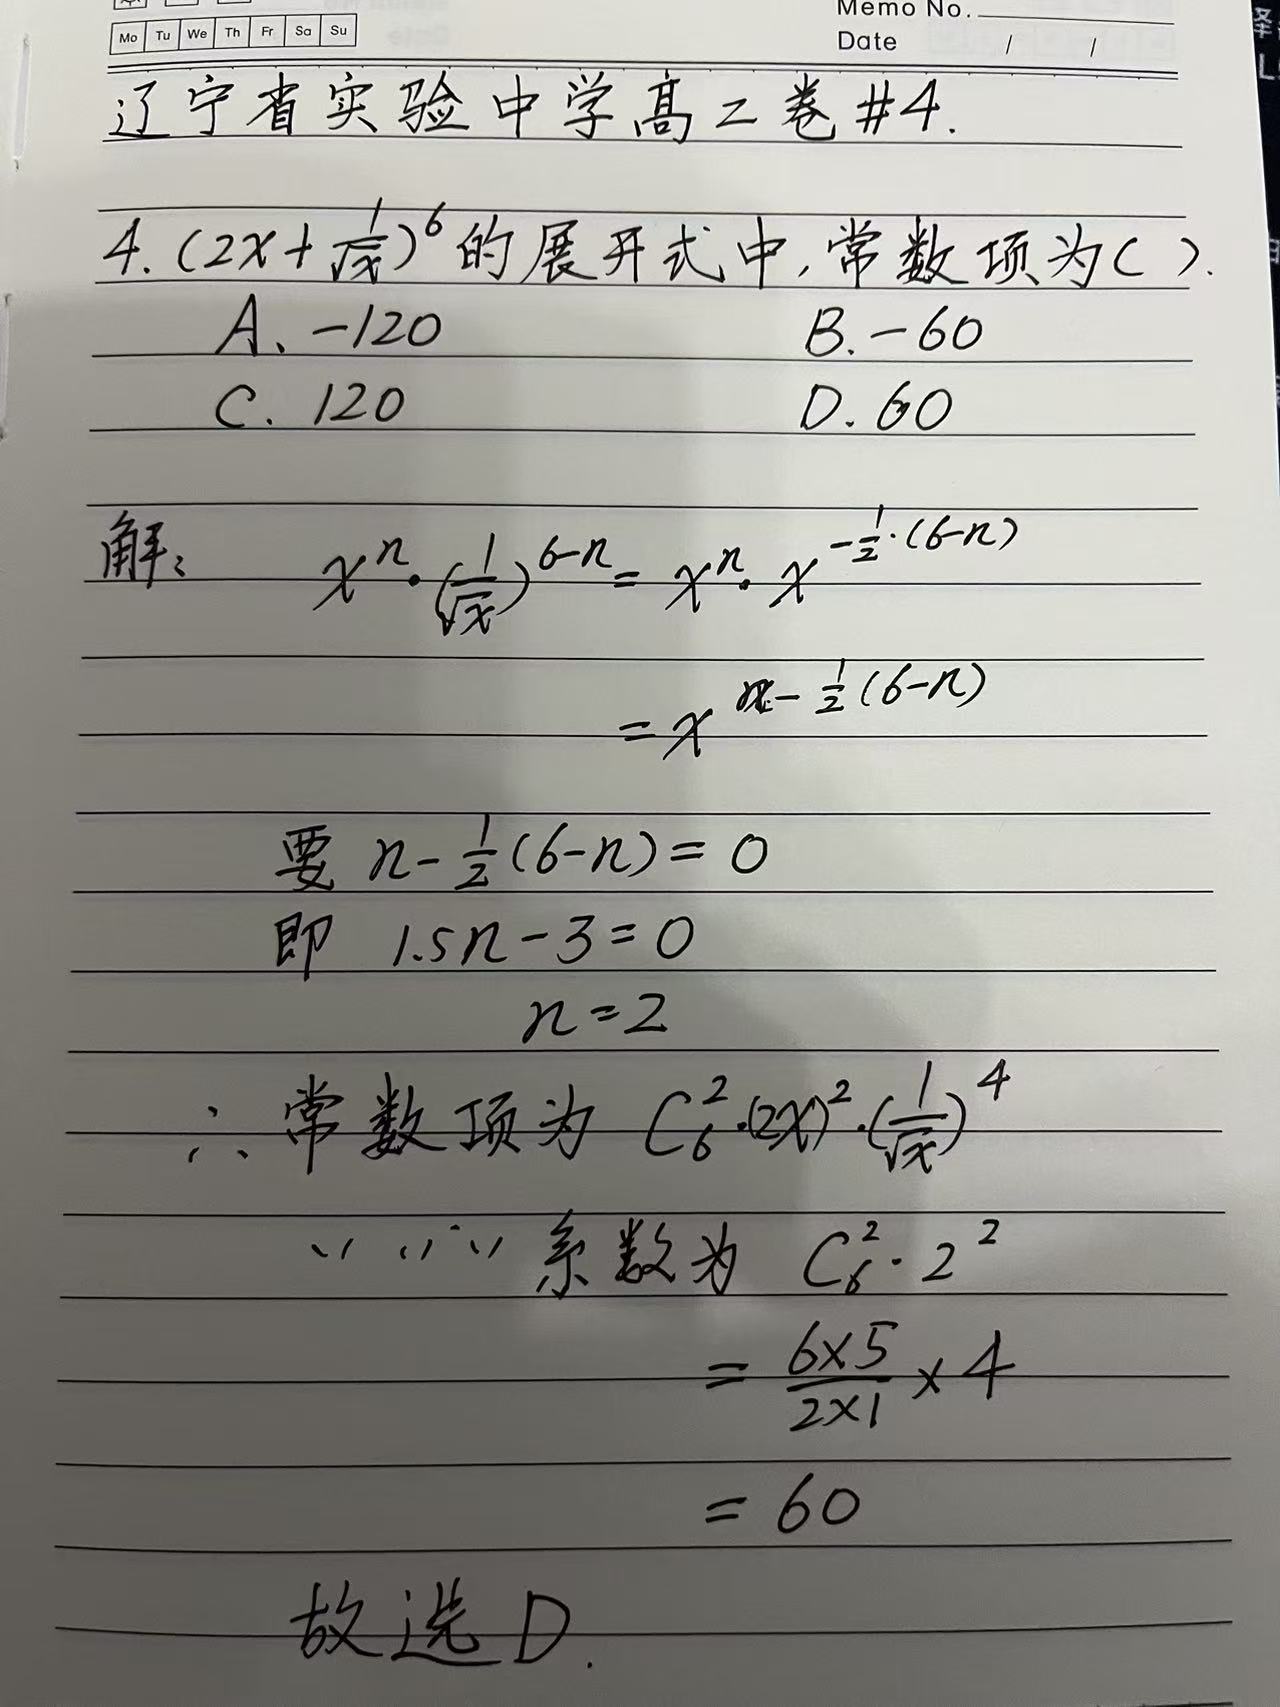 Memo No.
Mo Tu We Th Fr Sa Su
Date / /
辽宁省实验中学高二卷#4.
4. (2x+1/√x)^6 的展开式中,常数项为( ).
A. -120 B. -60
C. 120 D. 60
解: x^n·(1/√x)^(6-n) = x^n·x^(-1/2·(6-n))
= x^(n-1/2(6-n))
要 n-1/2(6-n)=0
即 1.5n-3=0
n=2
∴常数项为 C_6^2·(2x)^2·(1/√x)^4
〃 〃 〃 系数为 C_6^2·2^2
= (6×5)/(2×1)×4
= 60
故选D.